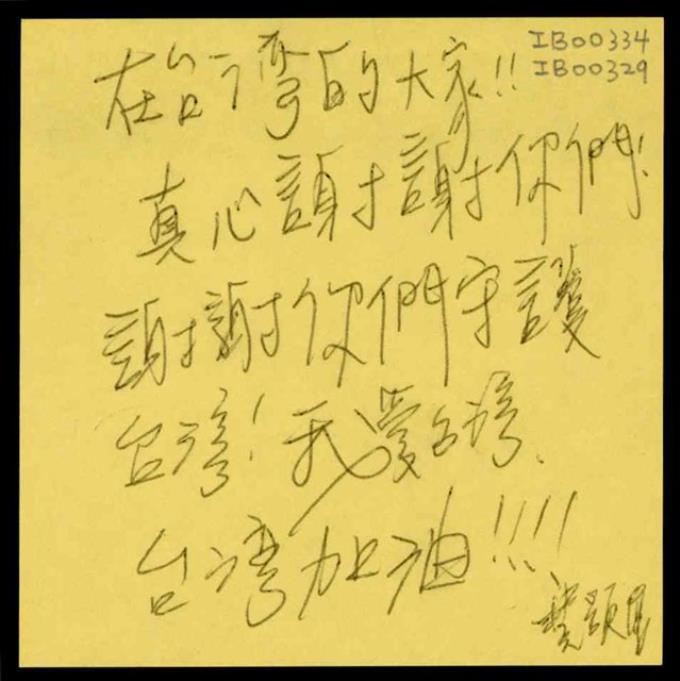 IB00334
IB00329
在台湾的大家!!
真心謝謝你們!
謝謝你們守護
台湾!我愛台湾.
台湾加油!!!!